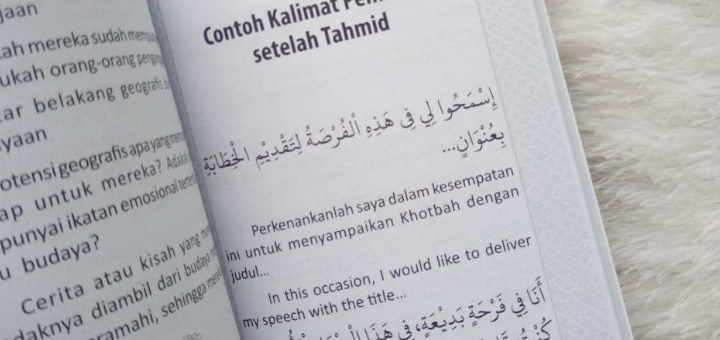 ah mereka sudah
ukah orang-orang
ar belakang geografis
yaan
otensi geografis apa yang
ap untuk mereka?
punyai ikatan emosional
u budaya?
Cerita atau kisah yang
daknya diambil dari budaya
ramahi, sehingga
Contoh Kalimat
setelah Tahmid
إِسْمَحُوا لِي فِي هَذِهِ الْفُرْصَةُ لِتَقْدِيْمِ الْخِطَابَةِ
بِعُنْوَانٍ...
Perkenankanlah saya dalam kesempatan
ini untuk menyampaikan Khotbah dengan
judul...
In this occasion, I would like to deliver
my speech with the title...
أَنَا فِي فَرْحَةٍ بَدِيْعَةٍ، فِي هَذَا